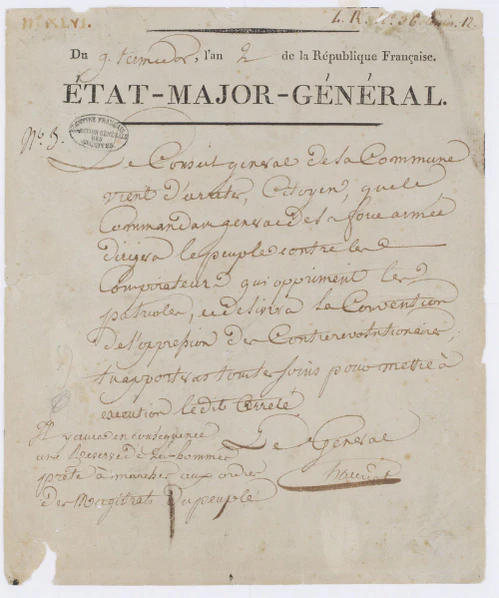 Nº XLVI.
Du 9. termidor, l'an 2 de la République Française.
ÉTAT-MAJOR-GÉNÉRAL.
Nº 8.
Le Conseil general de la Commune
vient d'arreter, Citoyen, que le
Commandant general de la force armée
dirigera le peuple contre les
Conspirateurs qui oppriment les
patriotes, et delivrera la Convention
de l'oppression des Contrerevolutionnaires;
tu apporteras tout tes soins pour mettre à
execution ledit arreté
Il y aura en consequence
une Reserve de hommes
prete à marcher aux ordres
des Magistrats du peuple
Le General
hanriot